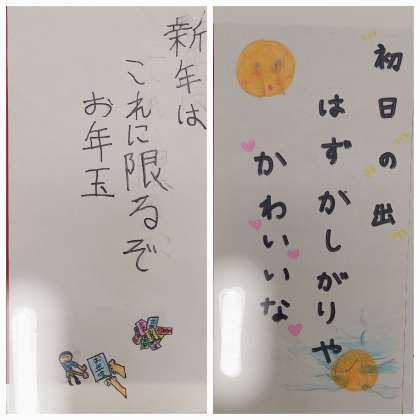 新年は
これに限るぞ
お年玉
初日の出
はずかしがりや
かわいいな